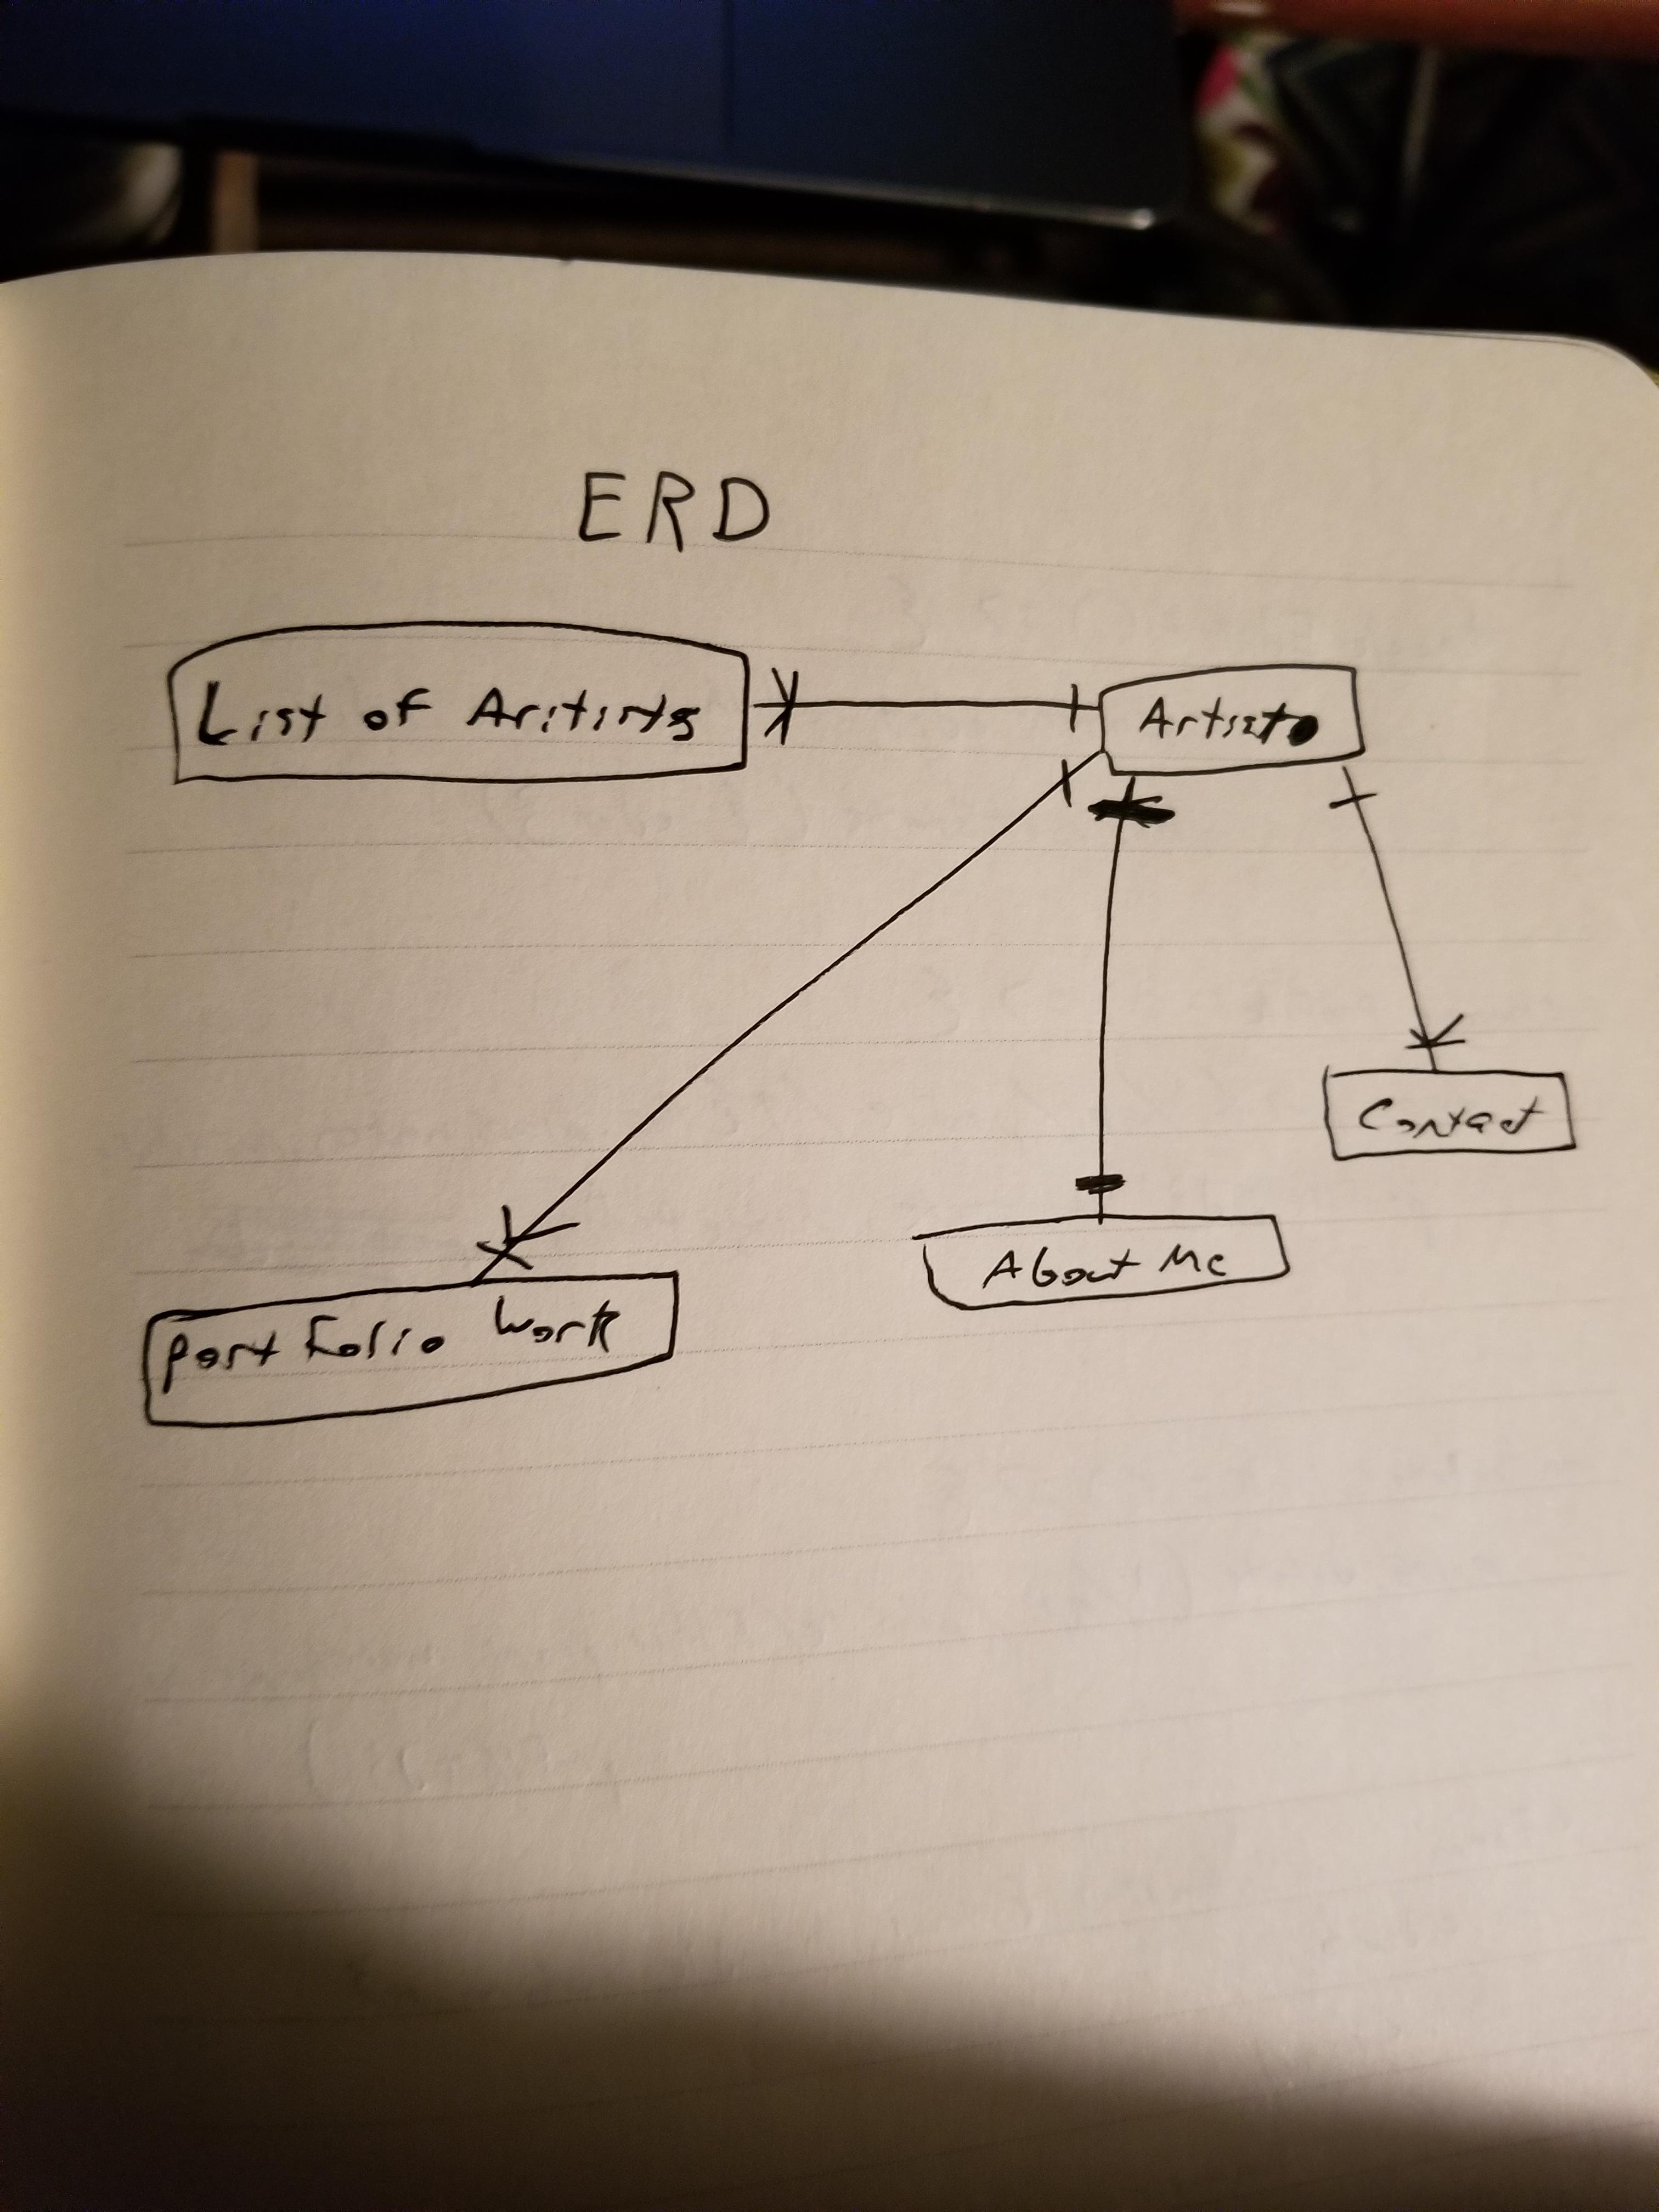 ERD
List of Aritists
Artist
Contact
About Me
Portfolio Work